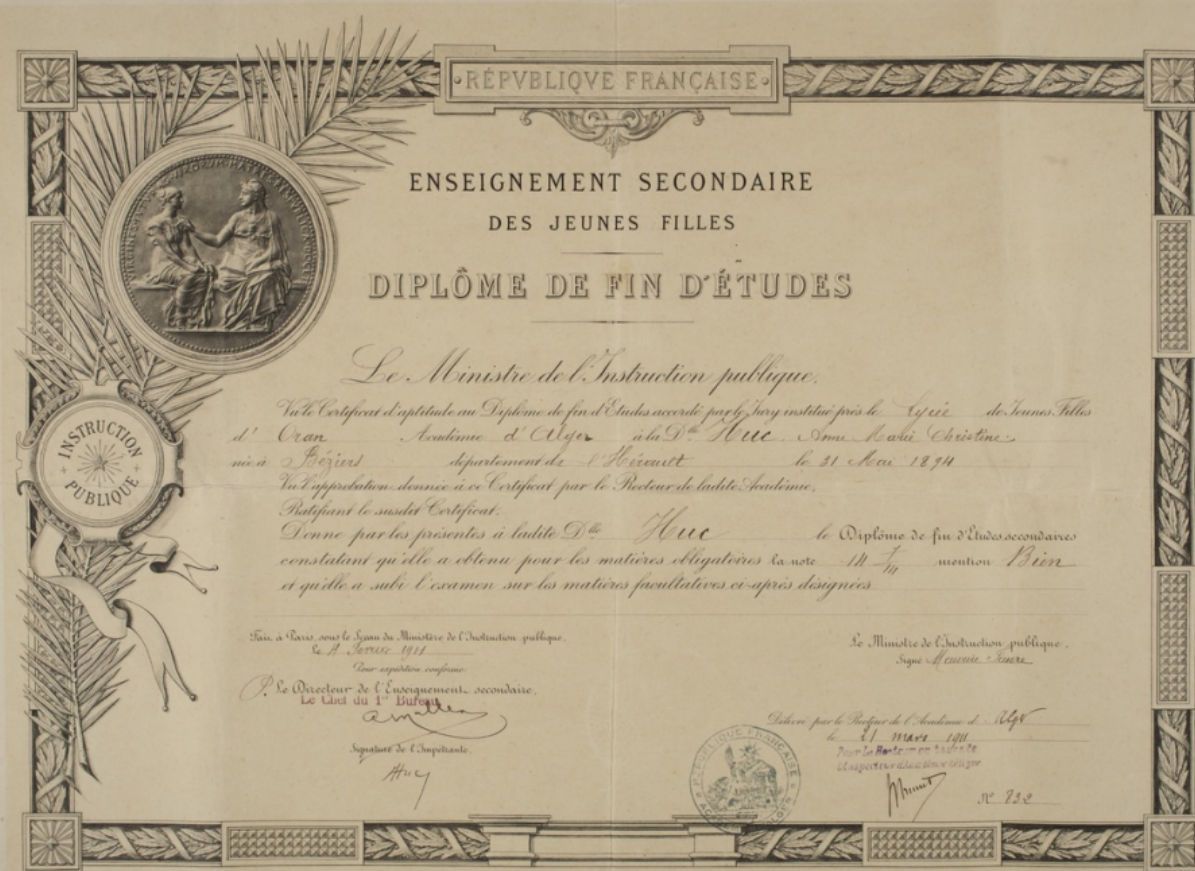 RÉPVBLIQVE FRANÇAISE
ENSEIGNEMENT SECONDAIRE
DES JEUNES FILLES
DIPLÔME DE FIN D'ÉTUDES
INSTRUCTION
PUBLIQUE
Le Ministre de l'Instruction publique,
Vu le Certificat d'aptitude au Diplôme de fin d'Etudes accordé par le Jury institué près le Lycée de Jeunes Filles
d' Oran Académie d' Alger à la Dlle Huc Anne Marie Christine
née à Béziers département de l'Hérault le 31 Mai 1894
Vu l'approbation donnée à ce Certificat par le Recteur de ladite Académie,
Ratifiant le susdit Certificat,
Donne par les présentes à ladite Dlle Huc le Diplôme de fin d'Etudes secondaires
constatant qu'elle a obtenu pour les matières obligatoires la note 14 mention Bien
et qu'elle a subi l'examen sur les matières facultatives ci-après désignées
Fait à Paris, sous le Sceau du Ministère de l'Instruction publique,
Le Février 1911
Pour expédition conforme
P. Le Directeur de l'Enseignement secondaire,
Le Chef du 1er Bureau
Signature de l'Impétrante,
AHuc
Le Ministre de l'Instruction publique,
Signé Maurice Faure
Délivré par le Recteur de l'Académie d' Alger
le 21 mars 1911
Pour Le Recteur
L'Inspecteur d'Académie délégué
No 832
RÉPUBLIQUE FRANÇAISE